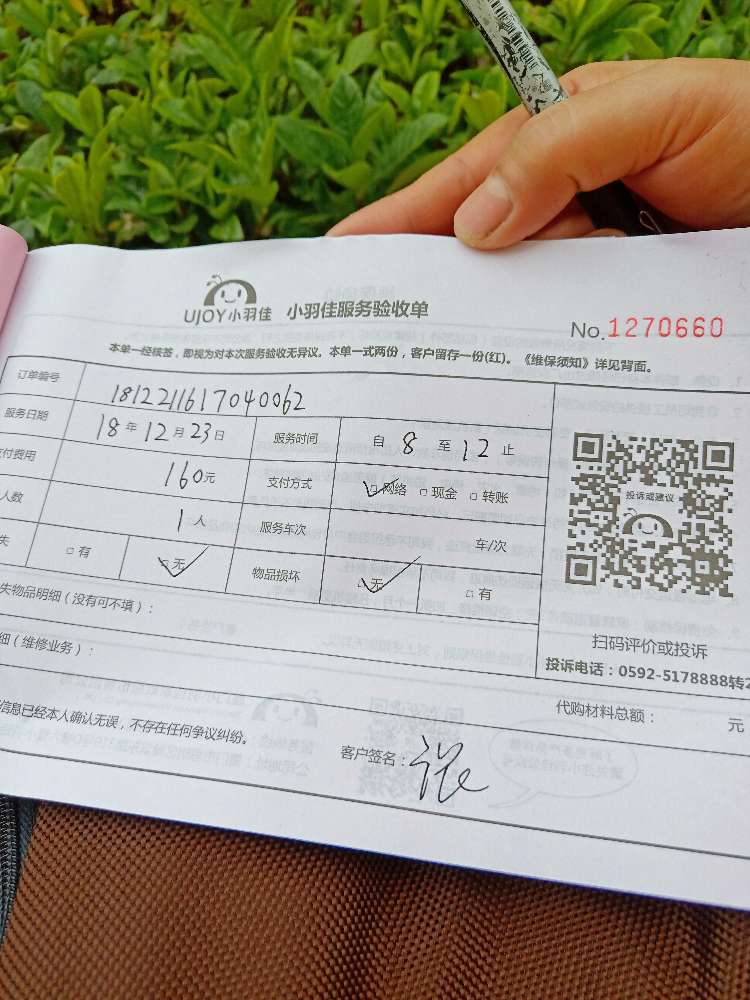 UJOY小羽佳 小羽佳服务验收单
No.1270660
本单一经核签，即视为对本次服务验收无异议。本单一式两份，客户留存一份(红)。《维保须知》详见背面。
订单编号 1812211617040062
服务日期 18年12月23日 服务时间 自8至12止
付费用 160元 支付方式 ☑网络 □现金 □转账
人数 1人 服务车次 车/次
失 □有 ☑无 物品损坏 ☑无 □有
失物品明细（没有可不填）：
细（维修业务）：
投诉或建议
扫码评价或投诉
投诉电话：0592-5178888转2
代购材料总额： 元
信息已经本人确认无误，不存在任何争议纠纷。
客户签名：张